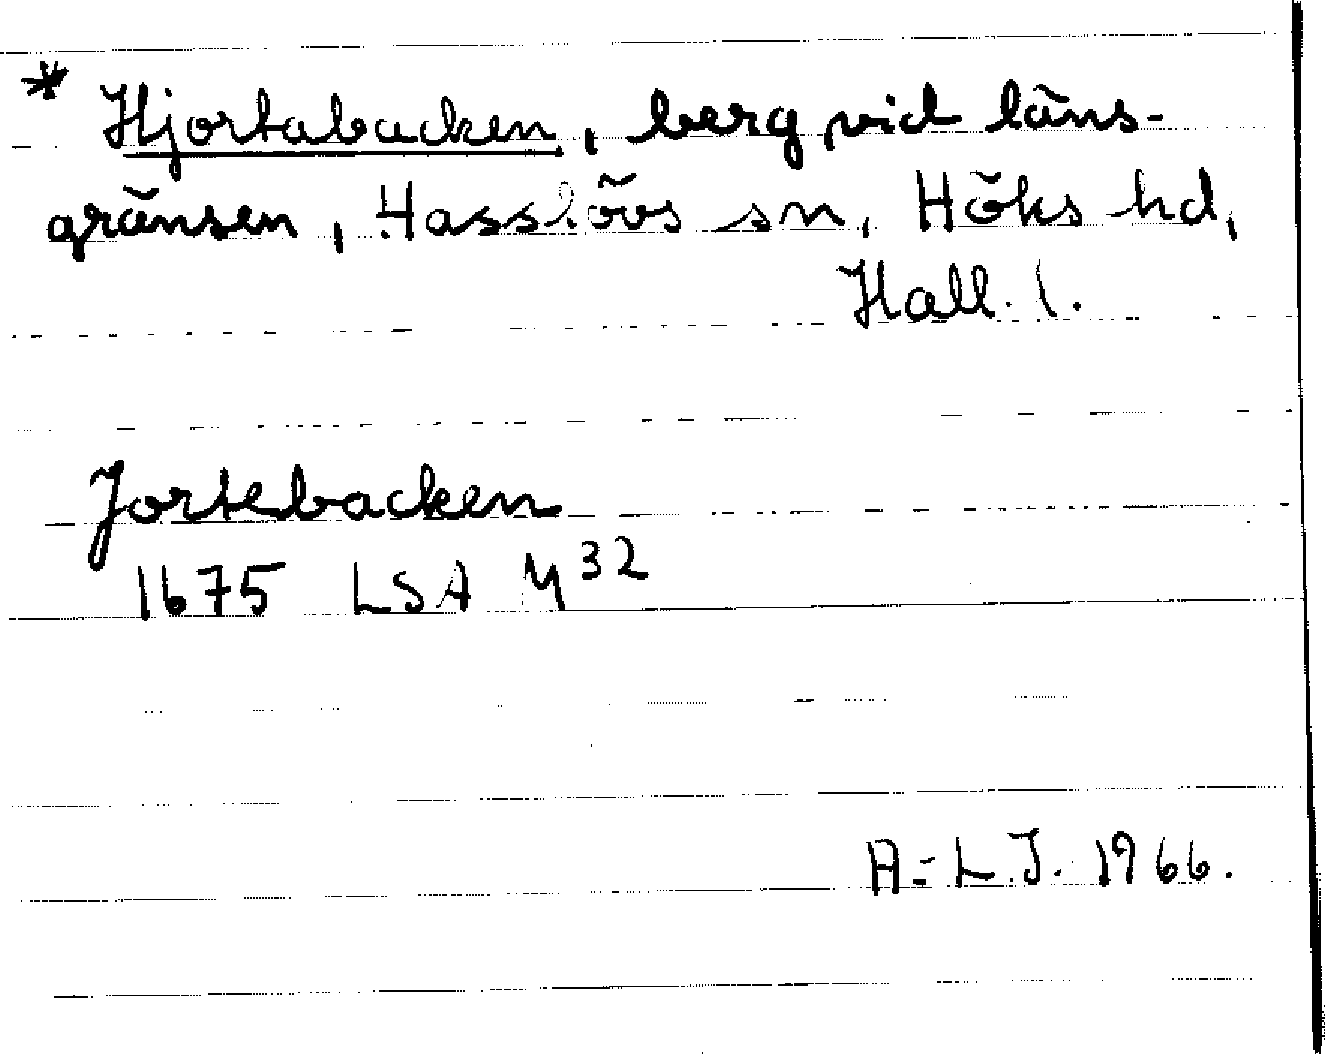 * Hjortabacken, berg vid läns-
gränsen, Hasslövs sn, Höks hd,
Hall. l.
Jortebacken
1675 LSA Y 32
A-L.J. 1966.